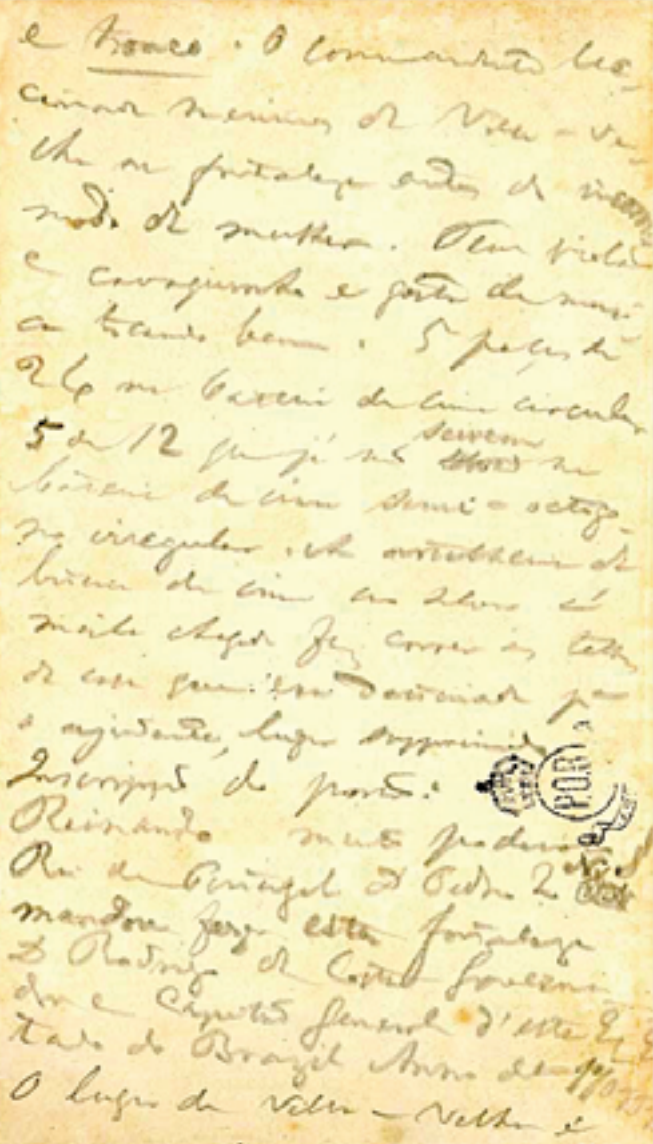 e tronco. O commandante lec-
ciona meninos de Villa-Ve-
lha na fortaleza antes de
modo de mulher. Tem viola
e cavaquinho e gosta de musi-
ca tocando bem. 5 peças de
24 na bateria de cima circular
5 de 12 que já não servem na
bateria de cima semi-octogo-
no irregular. A artilheria da
bateria de cima ao salvar é
muito chegada faz correr as telhas
da casa que era destinada para
o ajudante, lugar supprimido
Inscripção do portão:
Reinando muito poderoso
Rei de Portugal D Pedro 2
mandou fazer esta fortaleza
D Rodrigo da Costa Governa
dor e Capitão general d'este Es
tado do Brazil Anno de
O lugar da Villa-Velha é
PORT